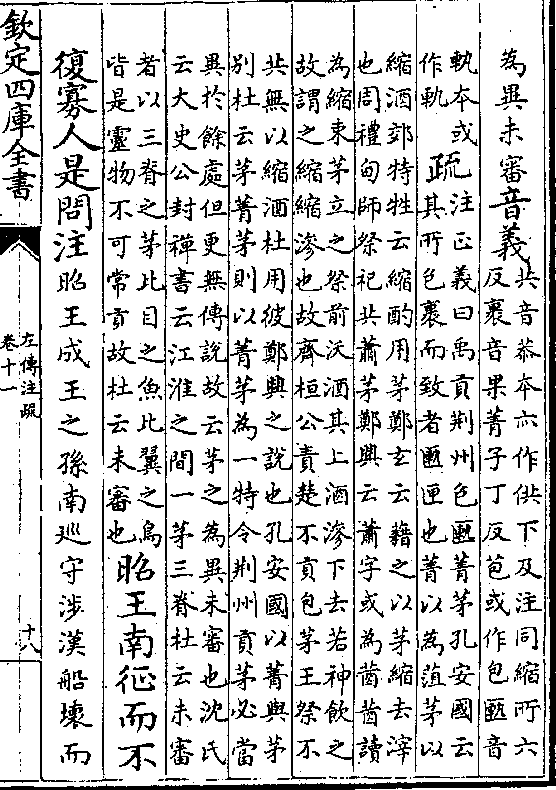 為異未審音義共音恭本亦作供下及注同縮所六
反裹音果菁子丁反苞或作包匭音
軌本或
作軌
疏注正義曰禹貢荆州包匭菁茅孔安國云
其所包裹而致者匭匣也菁以為菹茅以
縮酒郊特牲云縮酌用茅鄭玄云藉之以茅縮去滓
也周禮甸師祭祀共蕭茅鄭興云蕭字或為莤莤讀
為縮束茅立之祭前沃酒其上酒滲下去若神飲之
故謂之縮縮滲也故齊桓公責楚不貢包茅王祭不
共無以縮酒杜用彼鄭興之說也孔安國以菁與茅
別杜云茅菁茅則以菁茅為一特令荆州貢茅必當
異於餘處但更無傳說故云茅之為異未審也沈氏
云大史公封禪書云江淮之間一茅三脊杜云未審
者以三脊之茅比目之魚比翼之鳥
皆是靈物不可常貢故杜云未審也
昭王南征而不
復寡人是問注昭王成王之孫南巡守涉漢船壞而
欽定四庫全書
左傳注疏
卷十一
十八